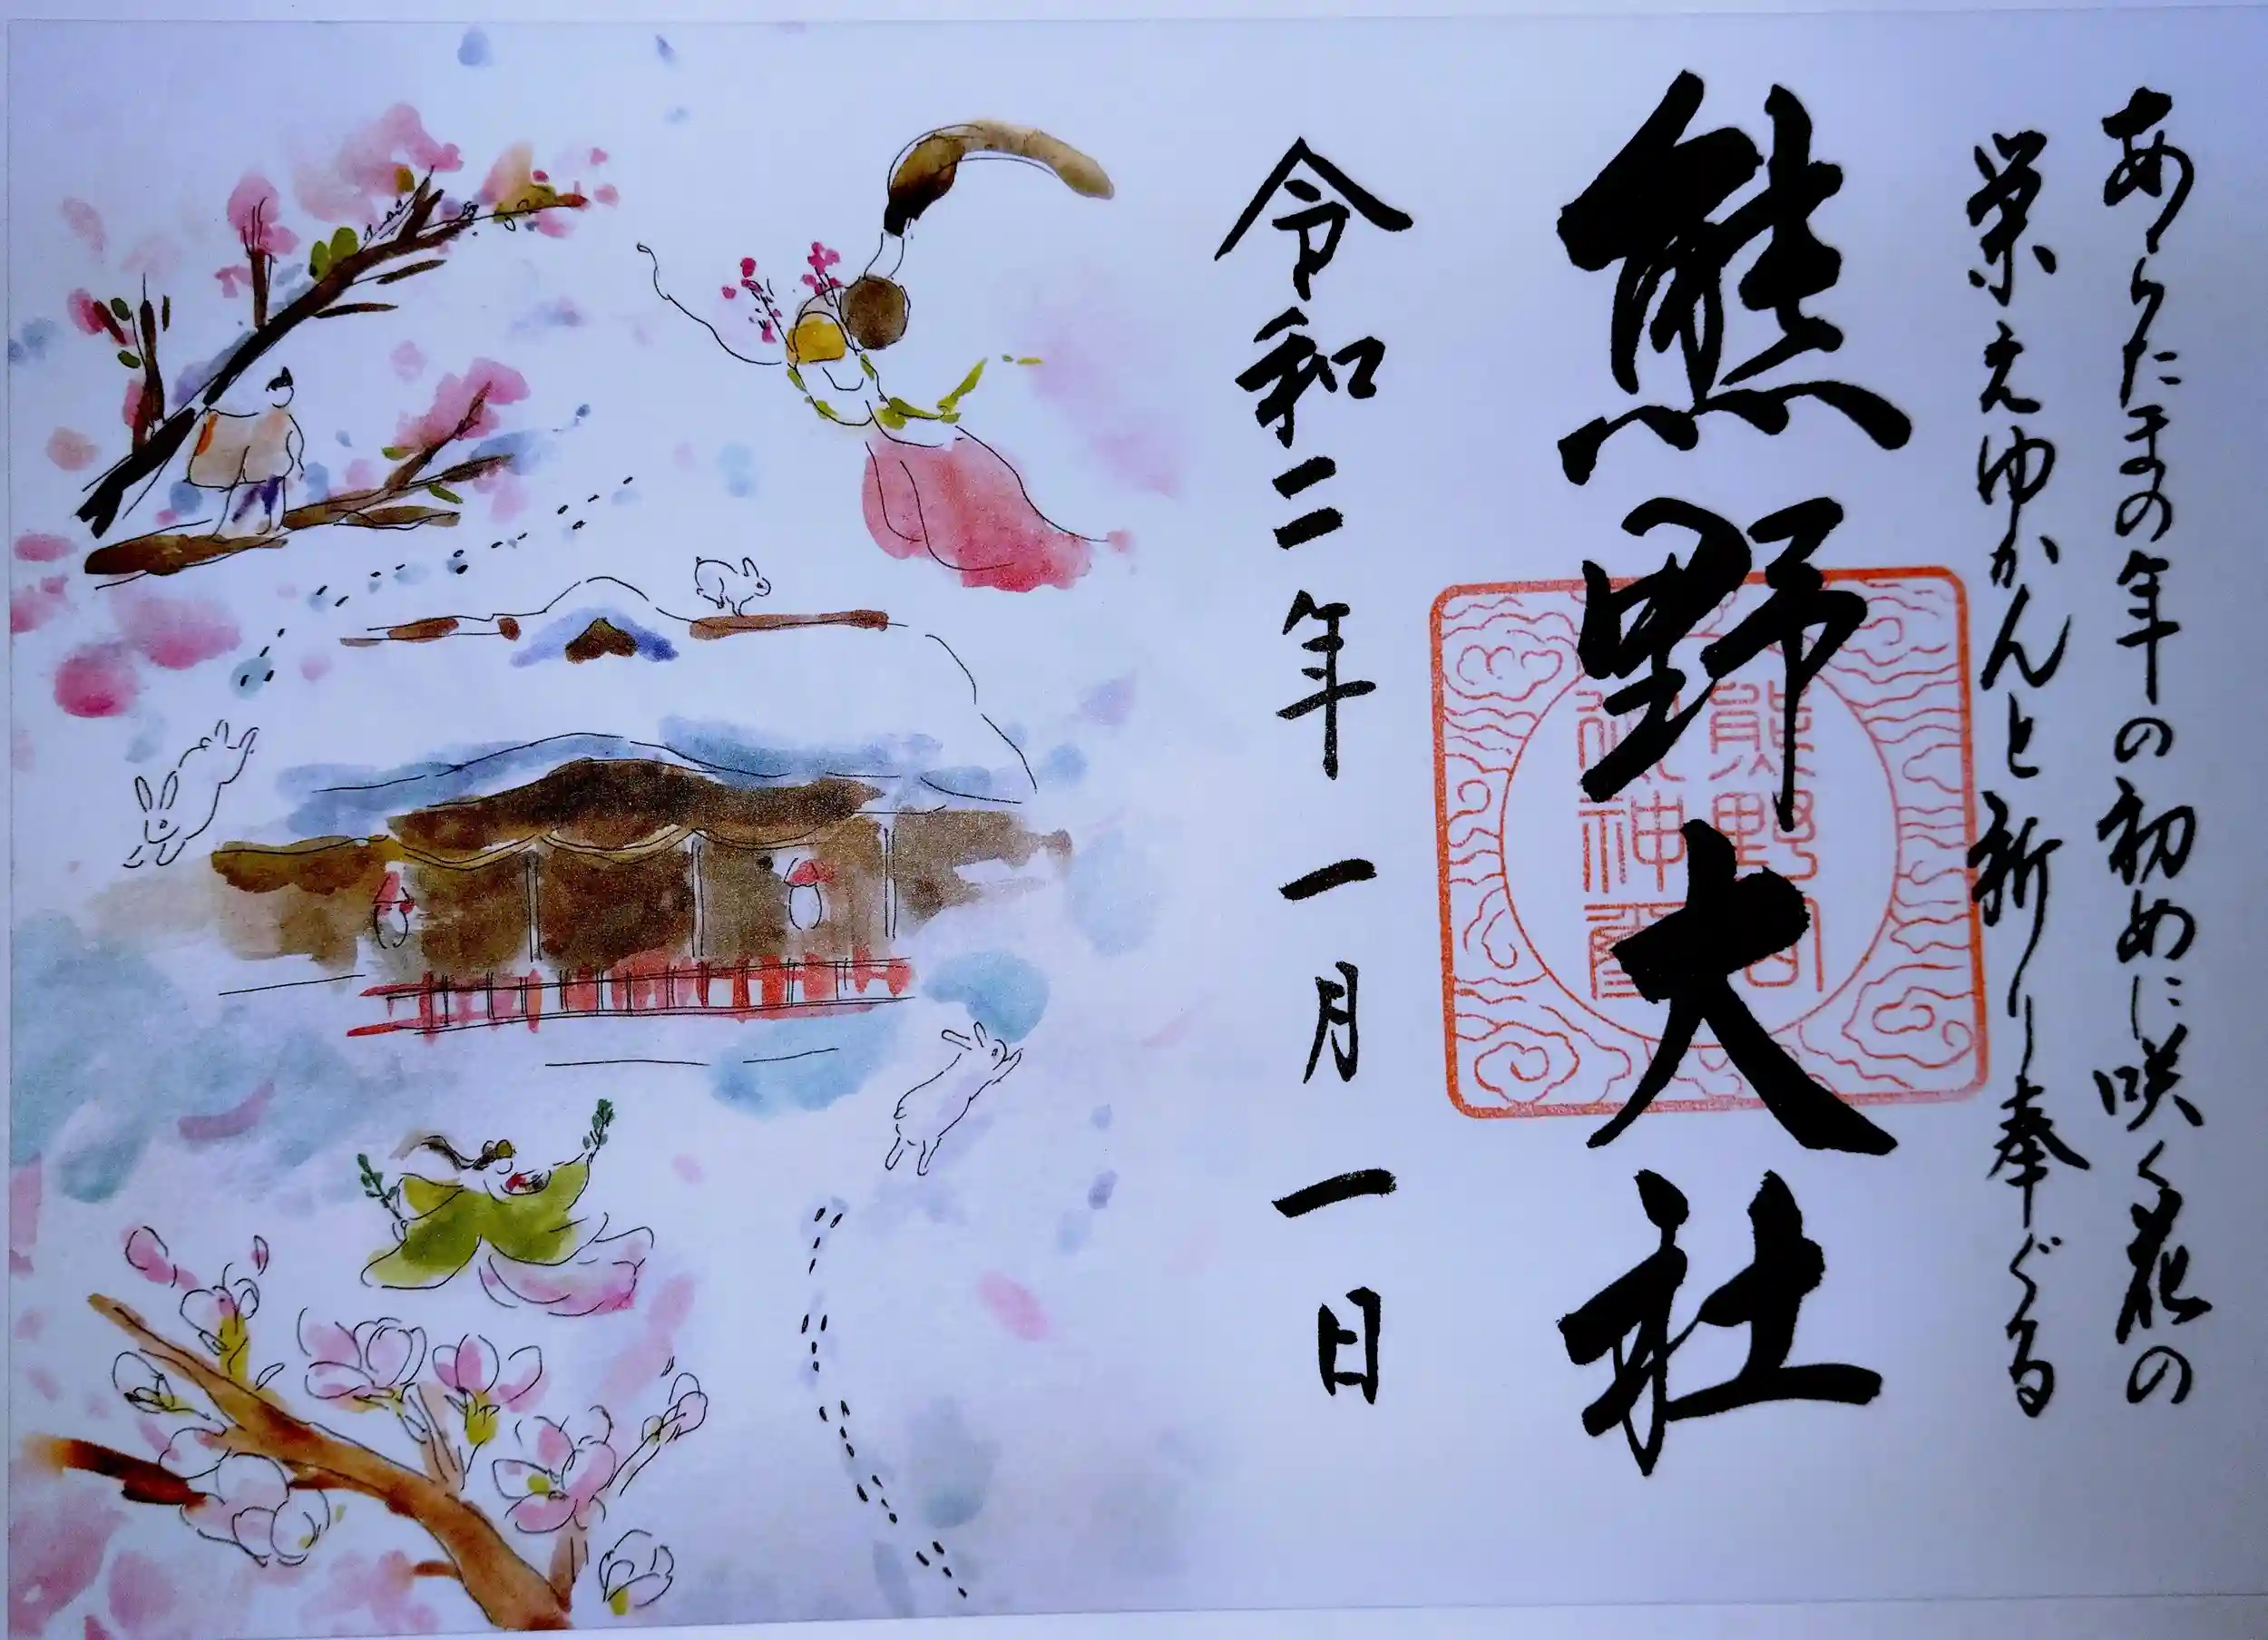 あらたまの年の初めに咲く花の
栄えゆかんと祈り奉ぐる
熊野大社
令和二年一月一日